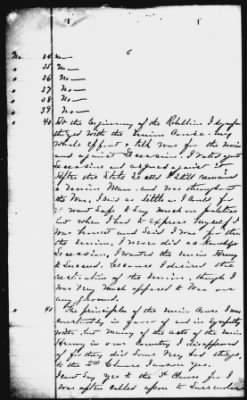 6
No 34 no—
" 35 No—
" 36 No—
" 37 No—
" 38 No—
" 39 No—
" 40 At the beginning of the Rebellion I sympa
thized with the Union Cause. My
whole effort & talk was for the Union
and against Secession. I voted against
Secession and argued against it.
After the State seceded I still remained
a Union Man. and was throughout
the War, I said as little as I could for
I want Safe to Say much on politics
but when I had to express myself I
was honest and said I was for the
the Union. I never did
Secession, I wanted the Union Army
to Succeed. because I desired the
restoration of the Union, though I
was very much opposed to War on
any ground.
" 41 The principles of the Union Cause I am
in favor of and in Sympathy
with, but many of the acts of the Union
Army in our Country I disapproved
of for they did Some very bad things.
to the 2nd Clause I answer yes.
I cant Say yes to the 3d Clause for I
was often called upon to